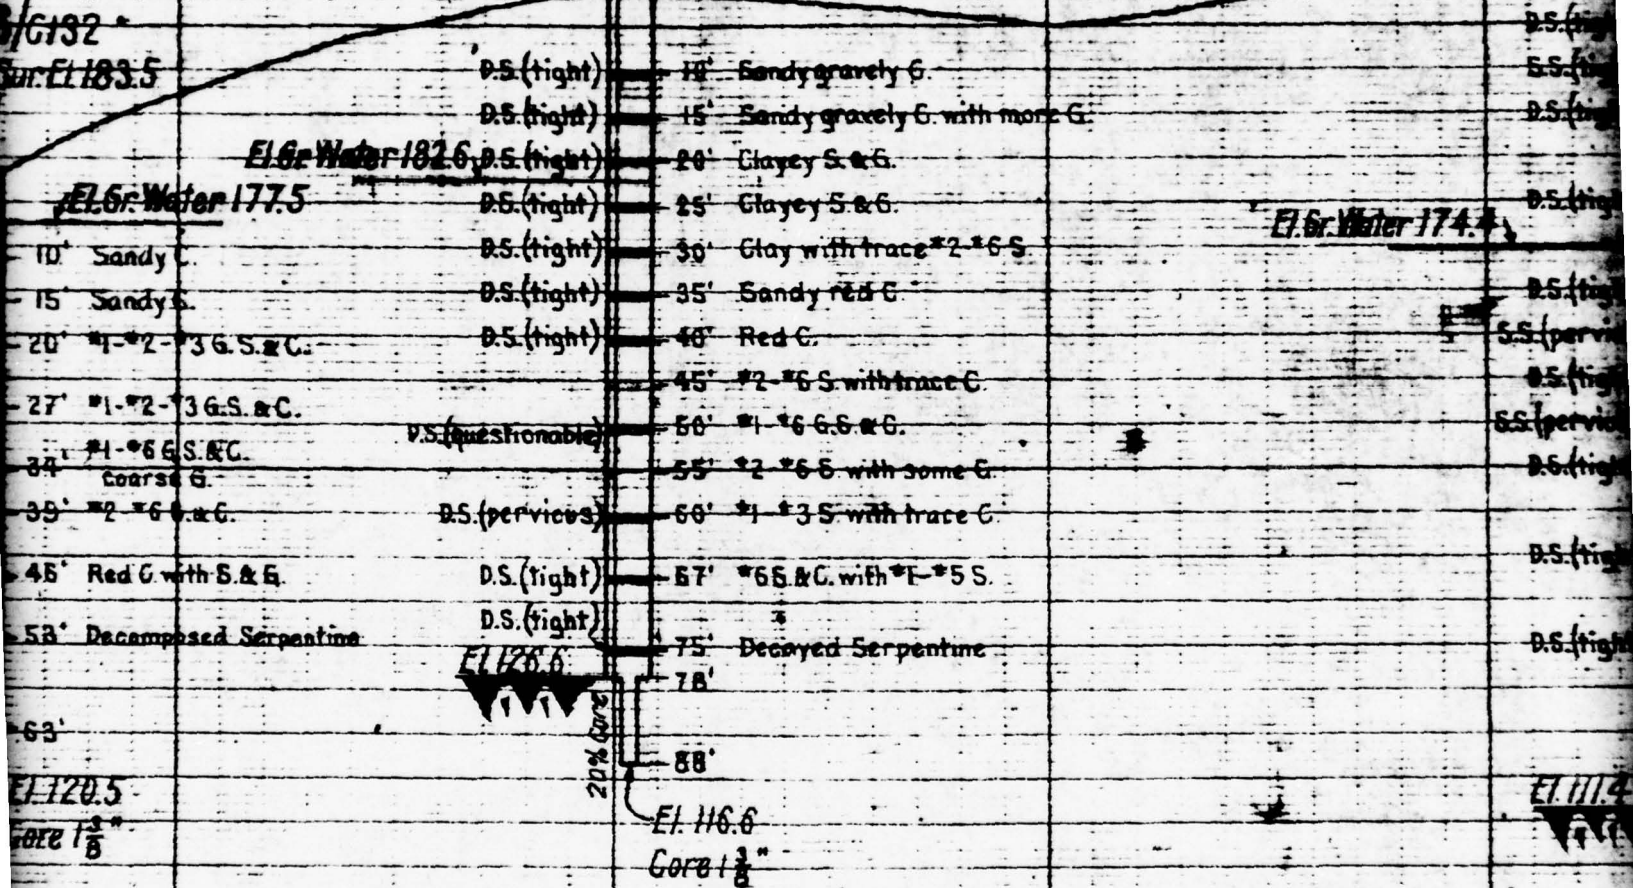 Sur. El. 183.5
El. Gr. Water 177.5
10' Sandy C.
15' Sandy
20' #1-#2-#3 G. S. & C.
27' #1-#2-#3 G. S. & C.
34' #1-#6 G. S. & C.
Coarse G.
39' #2-#6 & C.
46' Red C. with S. & G.
53' Decomposed Serpentine
63'
El. 120.5
Core 1 3/8"
El. Gr. Water 182.6
D.S. (tight) 10' Sandy gravely C.
D.S. (tight) 15' Sandy gravely C. with more G.
D.S. (tight) 20' Clayey S. & G.
D.S. (tight) 25' Clayey S. & G.
D.S. (tight) 30' Clay with trace #2-#6 S.
D.S. (tight) 35' Sandy red C.
D.S. (tight) 40' Red C.
45' #2-#6 S. with trace C.
D.S. (questionable) 50' #1-#6 G. S. & C.
55' #2-#6 S. with some G.
D.S. (pervious) 60' #1-#3 S. with trace C.
D.S. (tight) 67' #6 S. & C. with #1-#5 S.
D.S. (tight) 75' Decayed Serpentine
El. 126.6
78'
20% Core
88'
El. 116.6
Core 1 3/8"
El. Gr. Water 174.4
D.S. (tig
S.S. (tig
D.S. (tig
D.S. (tig
D.S. (tig
S.S. (pervio
D.S. (tig
S.S. (pervio
D.S. (tig
D.S. (tig
D.S. (tigh
El. 111.4